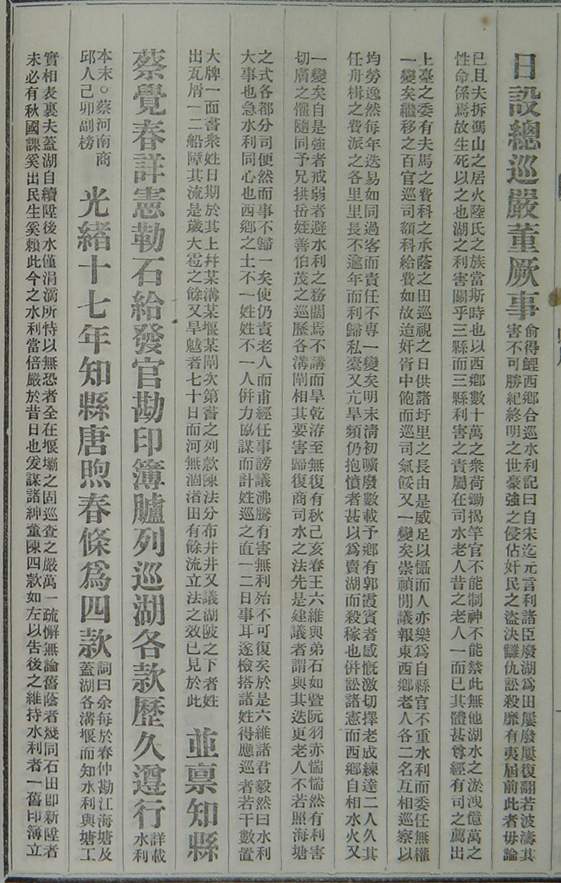 日設總巡嚴董厥事
俞得鯉西鄉合巡水利記曰自宋迄元言利諸臣廢湖爲田屢廢屢復翻若波濤其
害不可勝紀終明之世豪強之侵佔奸民之盜決讎仇訟殺靡有夷屆前此者毋論
已且夫拆駡山之居火陸氏之族當斯時也以西鄉數十萬之衆荷鋤揭竿官不能制神不能禁此無他湖水之淤洩億萬之
性命係焉故生死以之也湖之利害關乎三縣而三縣利害之責屬在司水老人昔之老人一而已其體甚尊經有司之薦出
上臺之委有夫馬之費科之承蔭之田巡視之日供諸圩里之長由是威足以懾而人亦樂爲自縣官不重水利而委任無權
一變矣繼移之百官巡司額科給費如故迨奸胥中飽而巡司氣餒又一變矣崇禎間議報東西鄉老人各二名互相巡察以
均勞逸然每年迭易如同過客而責任不專一變矣明末淸初曠廢數載予鄉有郭霞賓者感慨激切擇老成練達二人久其
任舟楫之費派之各里里長不逾年而利歸私橐又亢旱頻仍抱憤者甚以爲賣湖而殺稼也倂訟諸憲而西鄉自相水火又
一變矣自是強者戒弱者避水利之務閣焉不講而旱乾洊至無復有秋己亥春王六維與弟石如暨阮羽赤惴惴然有利害
切膚之懼隨同予兄拱岳姪善伯茂之巡歷各溝閘相其要害歸復商司水之法先是建議者謂與其迭更老人不若照海塘
之式各都分司便然而事不歸一矣使仍責老人而甫經任事謗議沸騰有害無利殆不可復矣於是六維諸君毅然曰水利
大事也急水利同心也西鄉之土不一姓姓不一人倂力協謀而計姓巡之直一二日事耳遂檢搭諸姓得應巡者若干數置
大牌一面書衆姓日期於其上幷某溝某堰某閘次第書之列款陳法分布井井又議湖陂之下者姓
出瓦屑一二船障其流是歲大雹之餘又旱魃者七十日而河無涸渚田有餘流立法之效已見於此
並稟知縣
蔡覺春詳憲勒石給發官勘印簿臚列巡湖各款歷久遵行
詳載
水利
本末○蔡河南商
邱人己卯副榜
光緖十七年知縣唐煦春條爲四款
詞曰余每於春仲勘江海塘及
蓋湖各溝堰而知水利與塘工
實相表裏夫蓋湖自續陞後水僅涓滴所恃以無恐者全在堰壩之固巡查之嚴萬一疏懈無論舊蔭者幾同石田卽新陞者
未必有秋國課奚出民生奚賴此今之水利當倍嚴於昔日也爰謀諸紳董陳四款如左以告後之維持水利者一舊印簿立